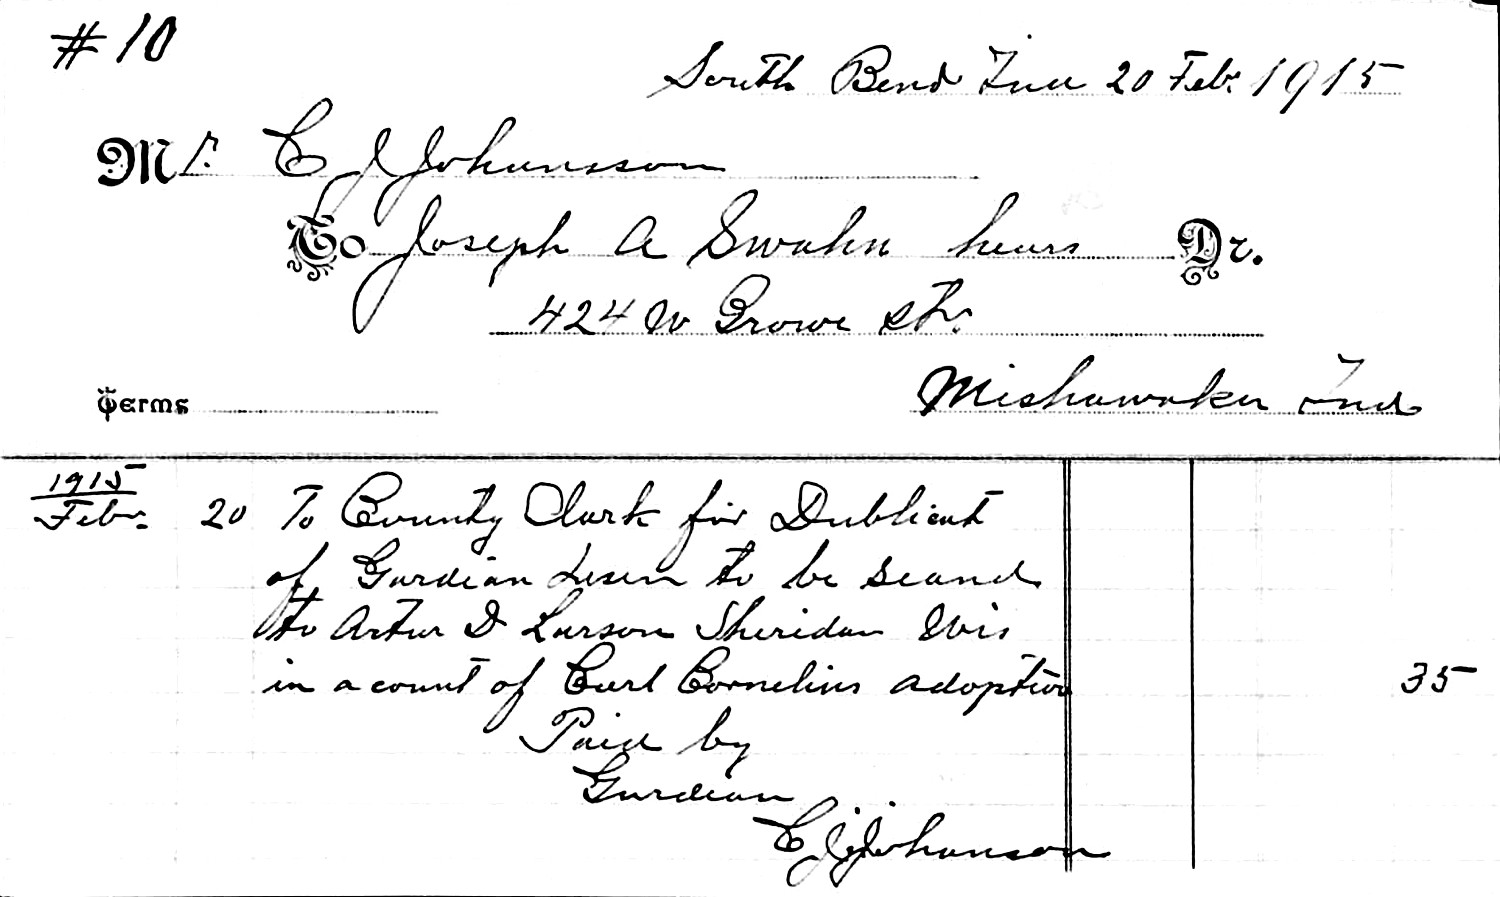 #10
South Bend Ind 20 Feb. 1915
Mr. C J Johansson
To Joseph A Swahn heurs Dr.
424 W Growe Str.
Terms
Mishawaker Ind
1915
Febr. 20 To County Clark for Dublicat
of Gurdian Lisen to be seand
to Artur D Larson Sheridan Wis
in acount of Carl Cornelius adoption 35
Paid by
Gurdian
C J Johanson